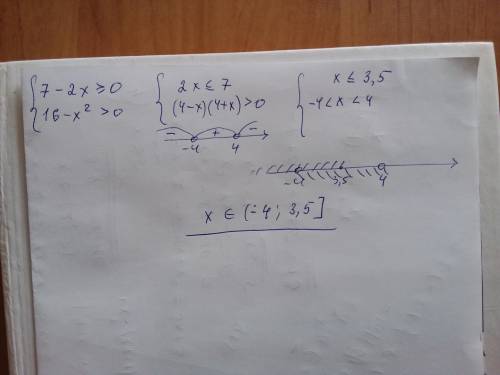 7 - 2x ≥ 0
16 - x² > 0
2x ≤ 7
(4-x)(4+x) > 0
- + -
-4 4
x ≤ 3,5
-4 < x < 4
-4 3,5 4
x ∈ (-4 ; 3,5]